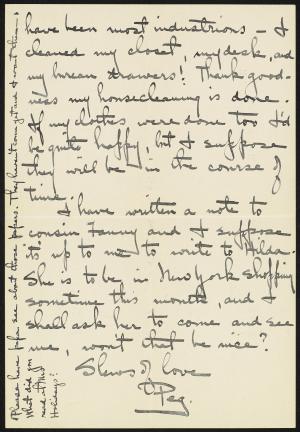 have been most industrious - I
cleaned my closet, my desk, and
my bureau drawers! Thank good-
ness my housecleaning is done.
If my clothes were done too I'd
be quite happy, but I suppose
they will be in the course of
time.
I have written a note to
cousin Fanny and I suppose
its up to me to write to Hilda.
She is to be in New York shopping
sometime this month, and I
shall ask her to come and see
me, won't that be nice?
Slews of love
Peg.
Please have papa see about those papers. They haven't come yet and I want them
What did you
read at the
Holidays?